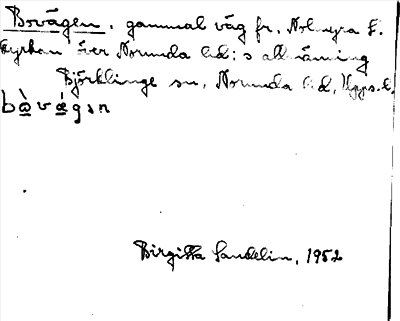 Bovägen, gammal väg fr. Nolmyra t.
kyrkan över Norunda hd:s allmänning
Björklinge sn, Norunda hd, Upps. l.
bà̱vá̱gən
Birgitta Sandelin, 1952